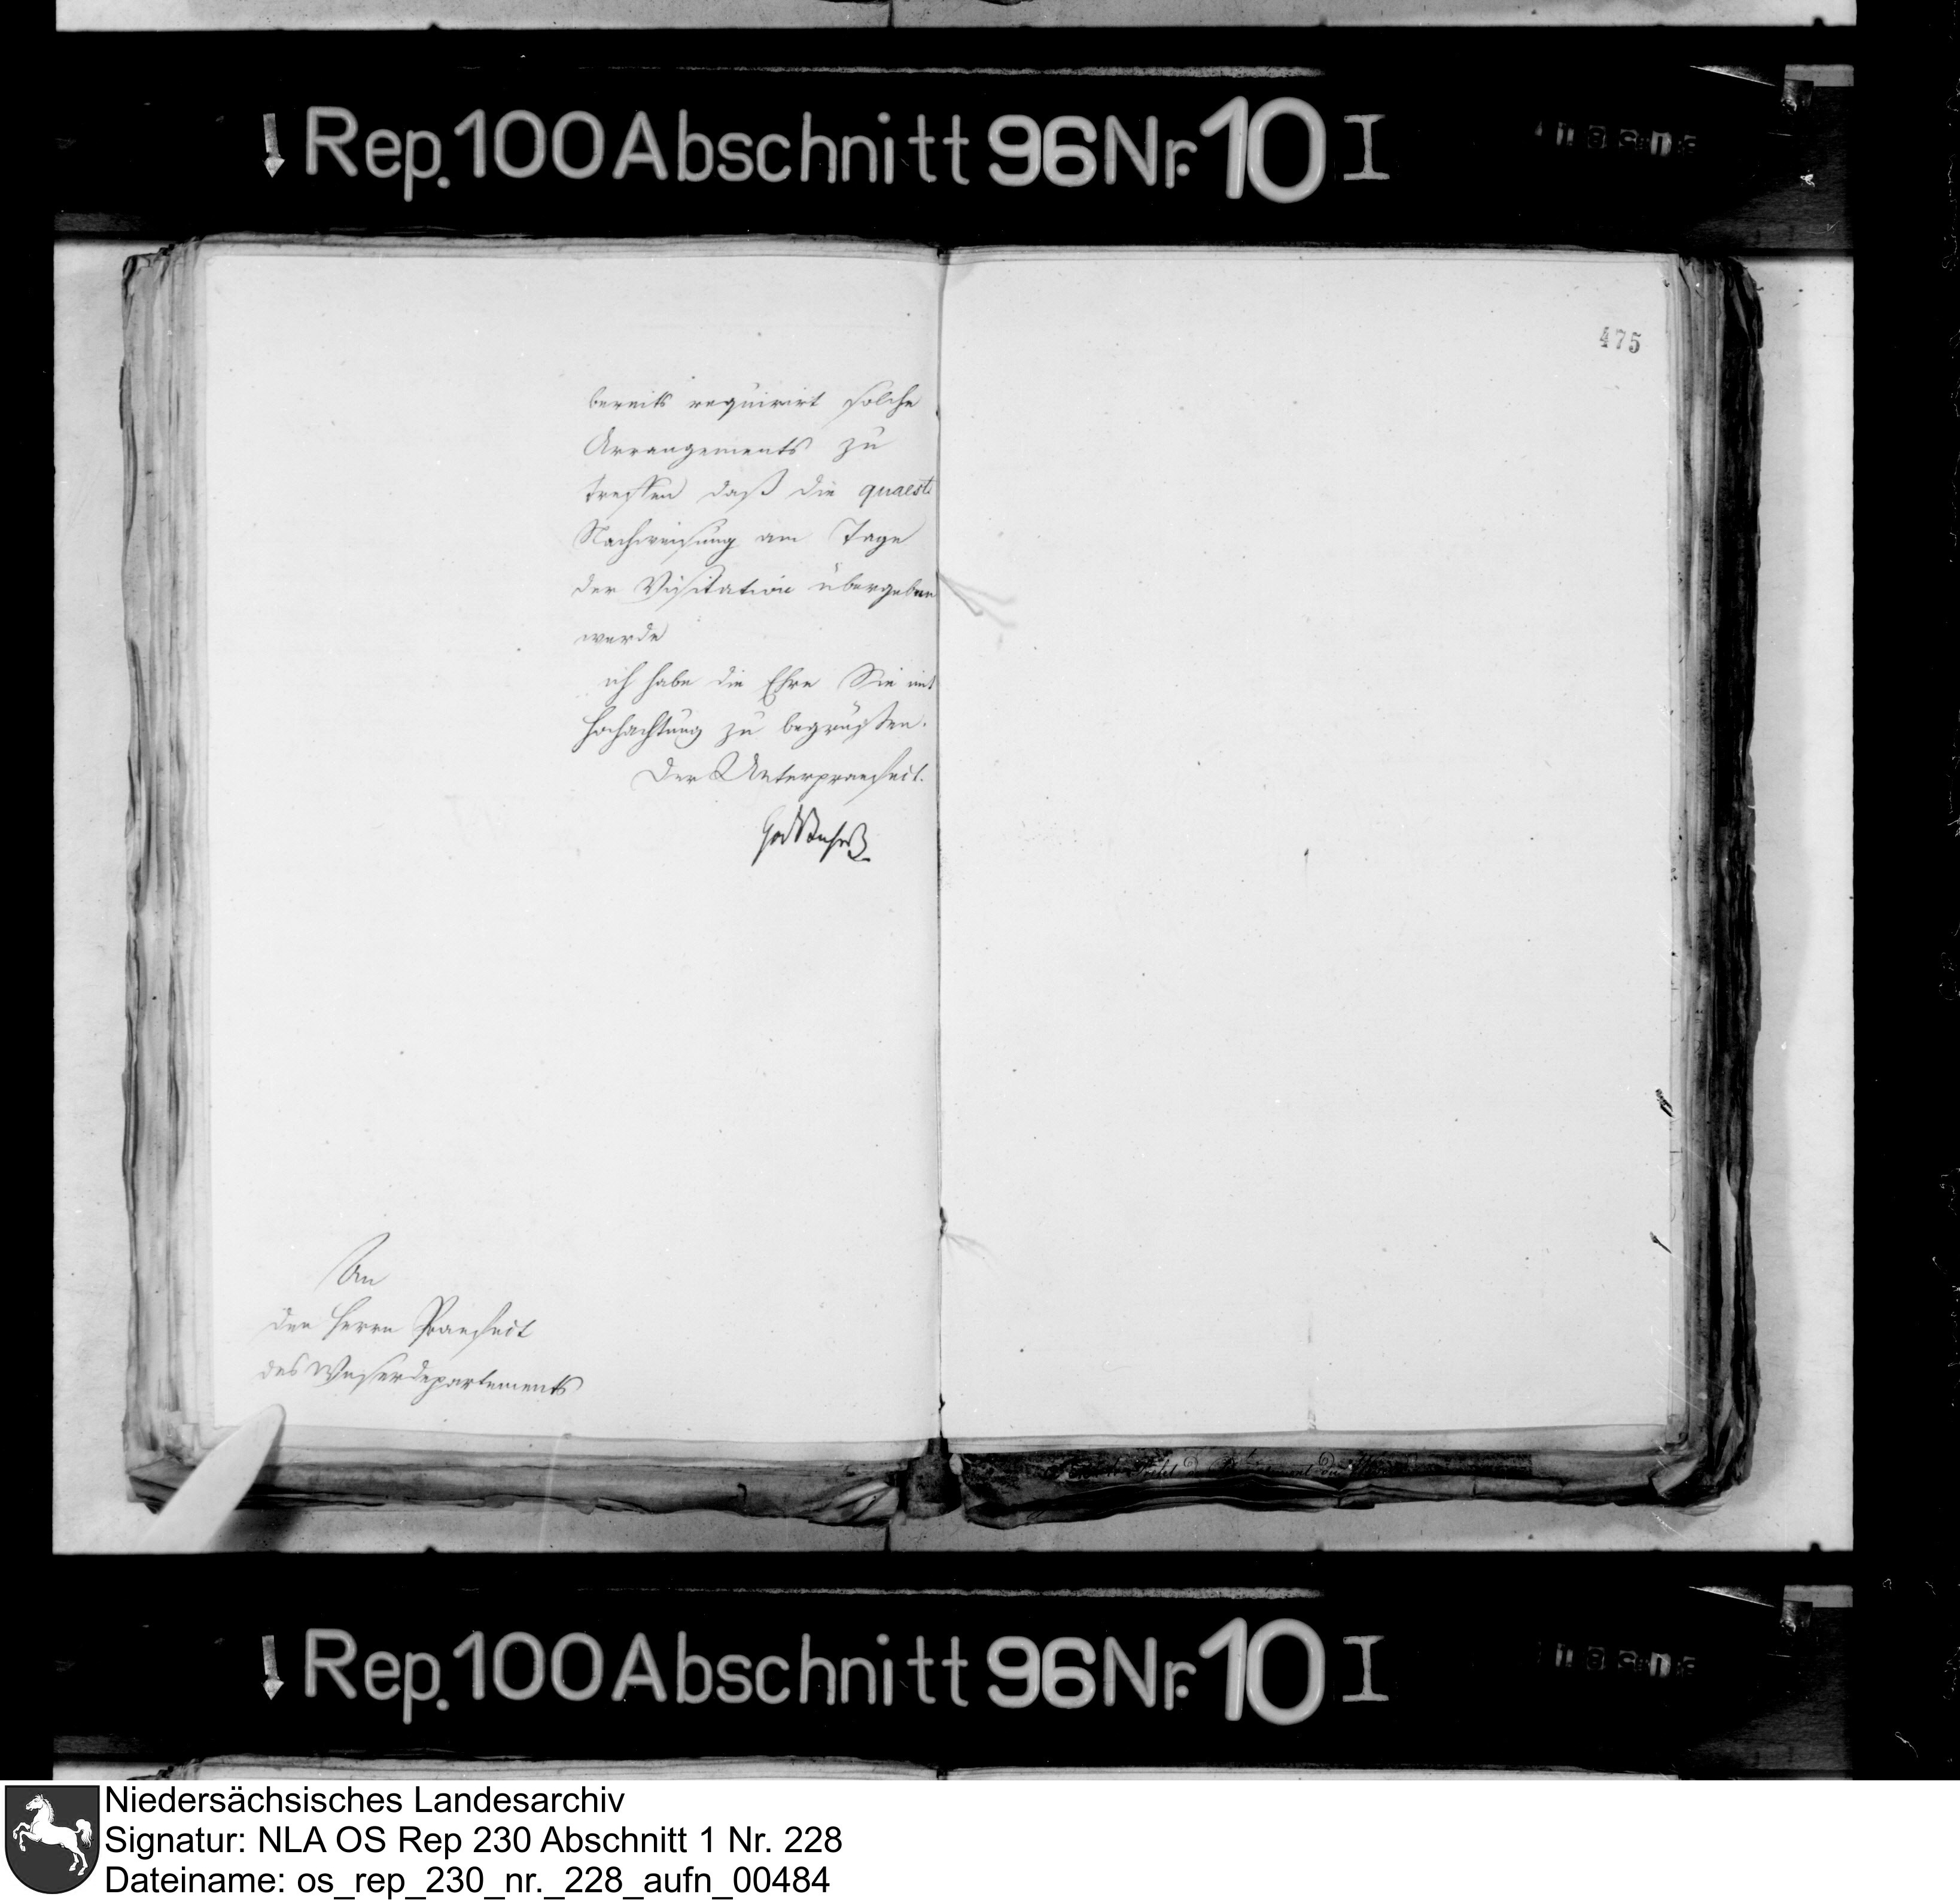 Rep. 100 Abschnitt 96 Nr. 10 I
475
bereits requirirt solche
Arrangements zu
treffen daß die quaest.
Nachweisung am Tage
der Visitation übergeben
werde
ich habe die Ehre Sie mit
Hochachtung zu begrüßen.
Der Unterpraefect.
An
den Herrn Praefect
des Weserdepartements
Rep. 100 Abschnitt 96 Nr. 10 I
Niedersächsisches Landesarchiv
Signatur: NLA OS Rep 230 Abschnitt 1 Nr. 228
Dateiname: os_rep_230_nr._228_aufn_00484